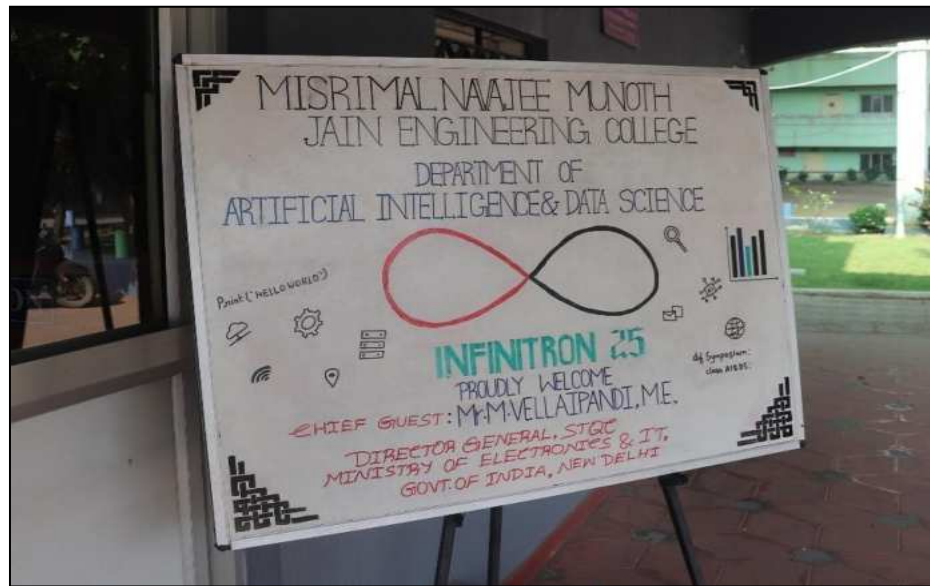 MISRIMAL NAVAJEE MUNOTH
JAIN ENGINEERING COLLEGE
DEPARTMENT OF
ARTIFICIAL INTELLIGENCE & DATA SCIENCE
Print("HELLO WORLD")
INFINITRON 25
def Symposium:
class AI&DS:
PROUDLY WELCOME
CHIEF GUEST: Mr.M.VELLAIPANDI, M.E.
DIRECTOR GENERAL, STQC
MINISTRY OF ELECTRONICS & IT,
GOVT. OF INDIA, NEW DELHI